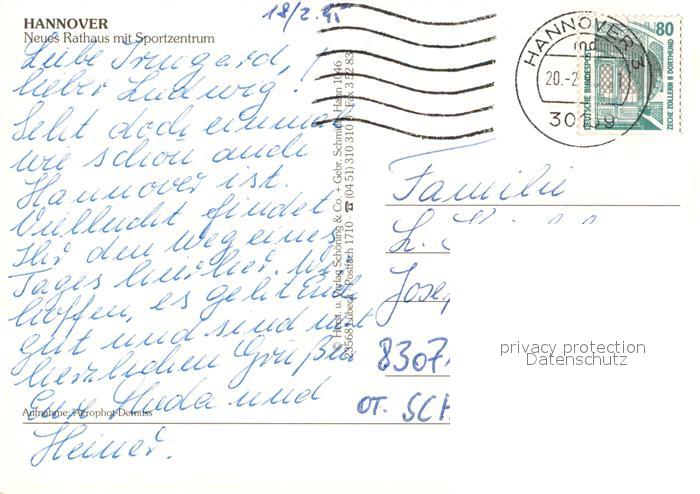 18/2.
HANNOVER
Neues Rathaus mit Sportzentrum
Liebe Irmgard,
lieber Ludwig!
Seht doch einmal
wie schön auch
Hannover ist.
Vielleicht findet
Ihr den Weg eines
Tages hierher. Wir
hoffen, es geht Euch
gut und sind mit
herzlichen Grüßen
Eure und
Heiner.
Aufnahme: Aerophot-Demuss
© Herst. u. Verlag Schöning & Co. + Gebr. Schmidt
23568 Lübeck · Postfach 1710 · ☎ (04 51) 310 310
HANNOVER 3
md
20.-2
DEUTSCHE BUNDESPOST
80
ZECHE ZOLLERN II DORTMUND
Familie
L.
8307
OT. SCH
privacy protection
Datenschutz